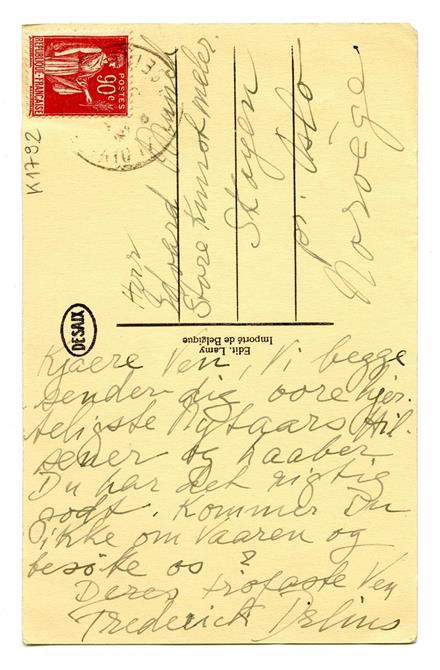 POSTES
90c
REPUBLIQUE FRANÇAISE
K1792
Herr
Edvard Munch
Store Kunstmaler.
Skøyen
pr. Oslo
Norvège
DESAIX
Edit. Lamy
Importé de Belgique
Kjaere Ven, Vi begge
sender dig vore hjer-
teligste Nytaars Hil-
sener og haaber
Du har det rigtig
godt. Kommer Du
ikke om Vaaren og
besöke os?
Deres trofaste Ven
Frederick Delius